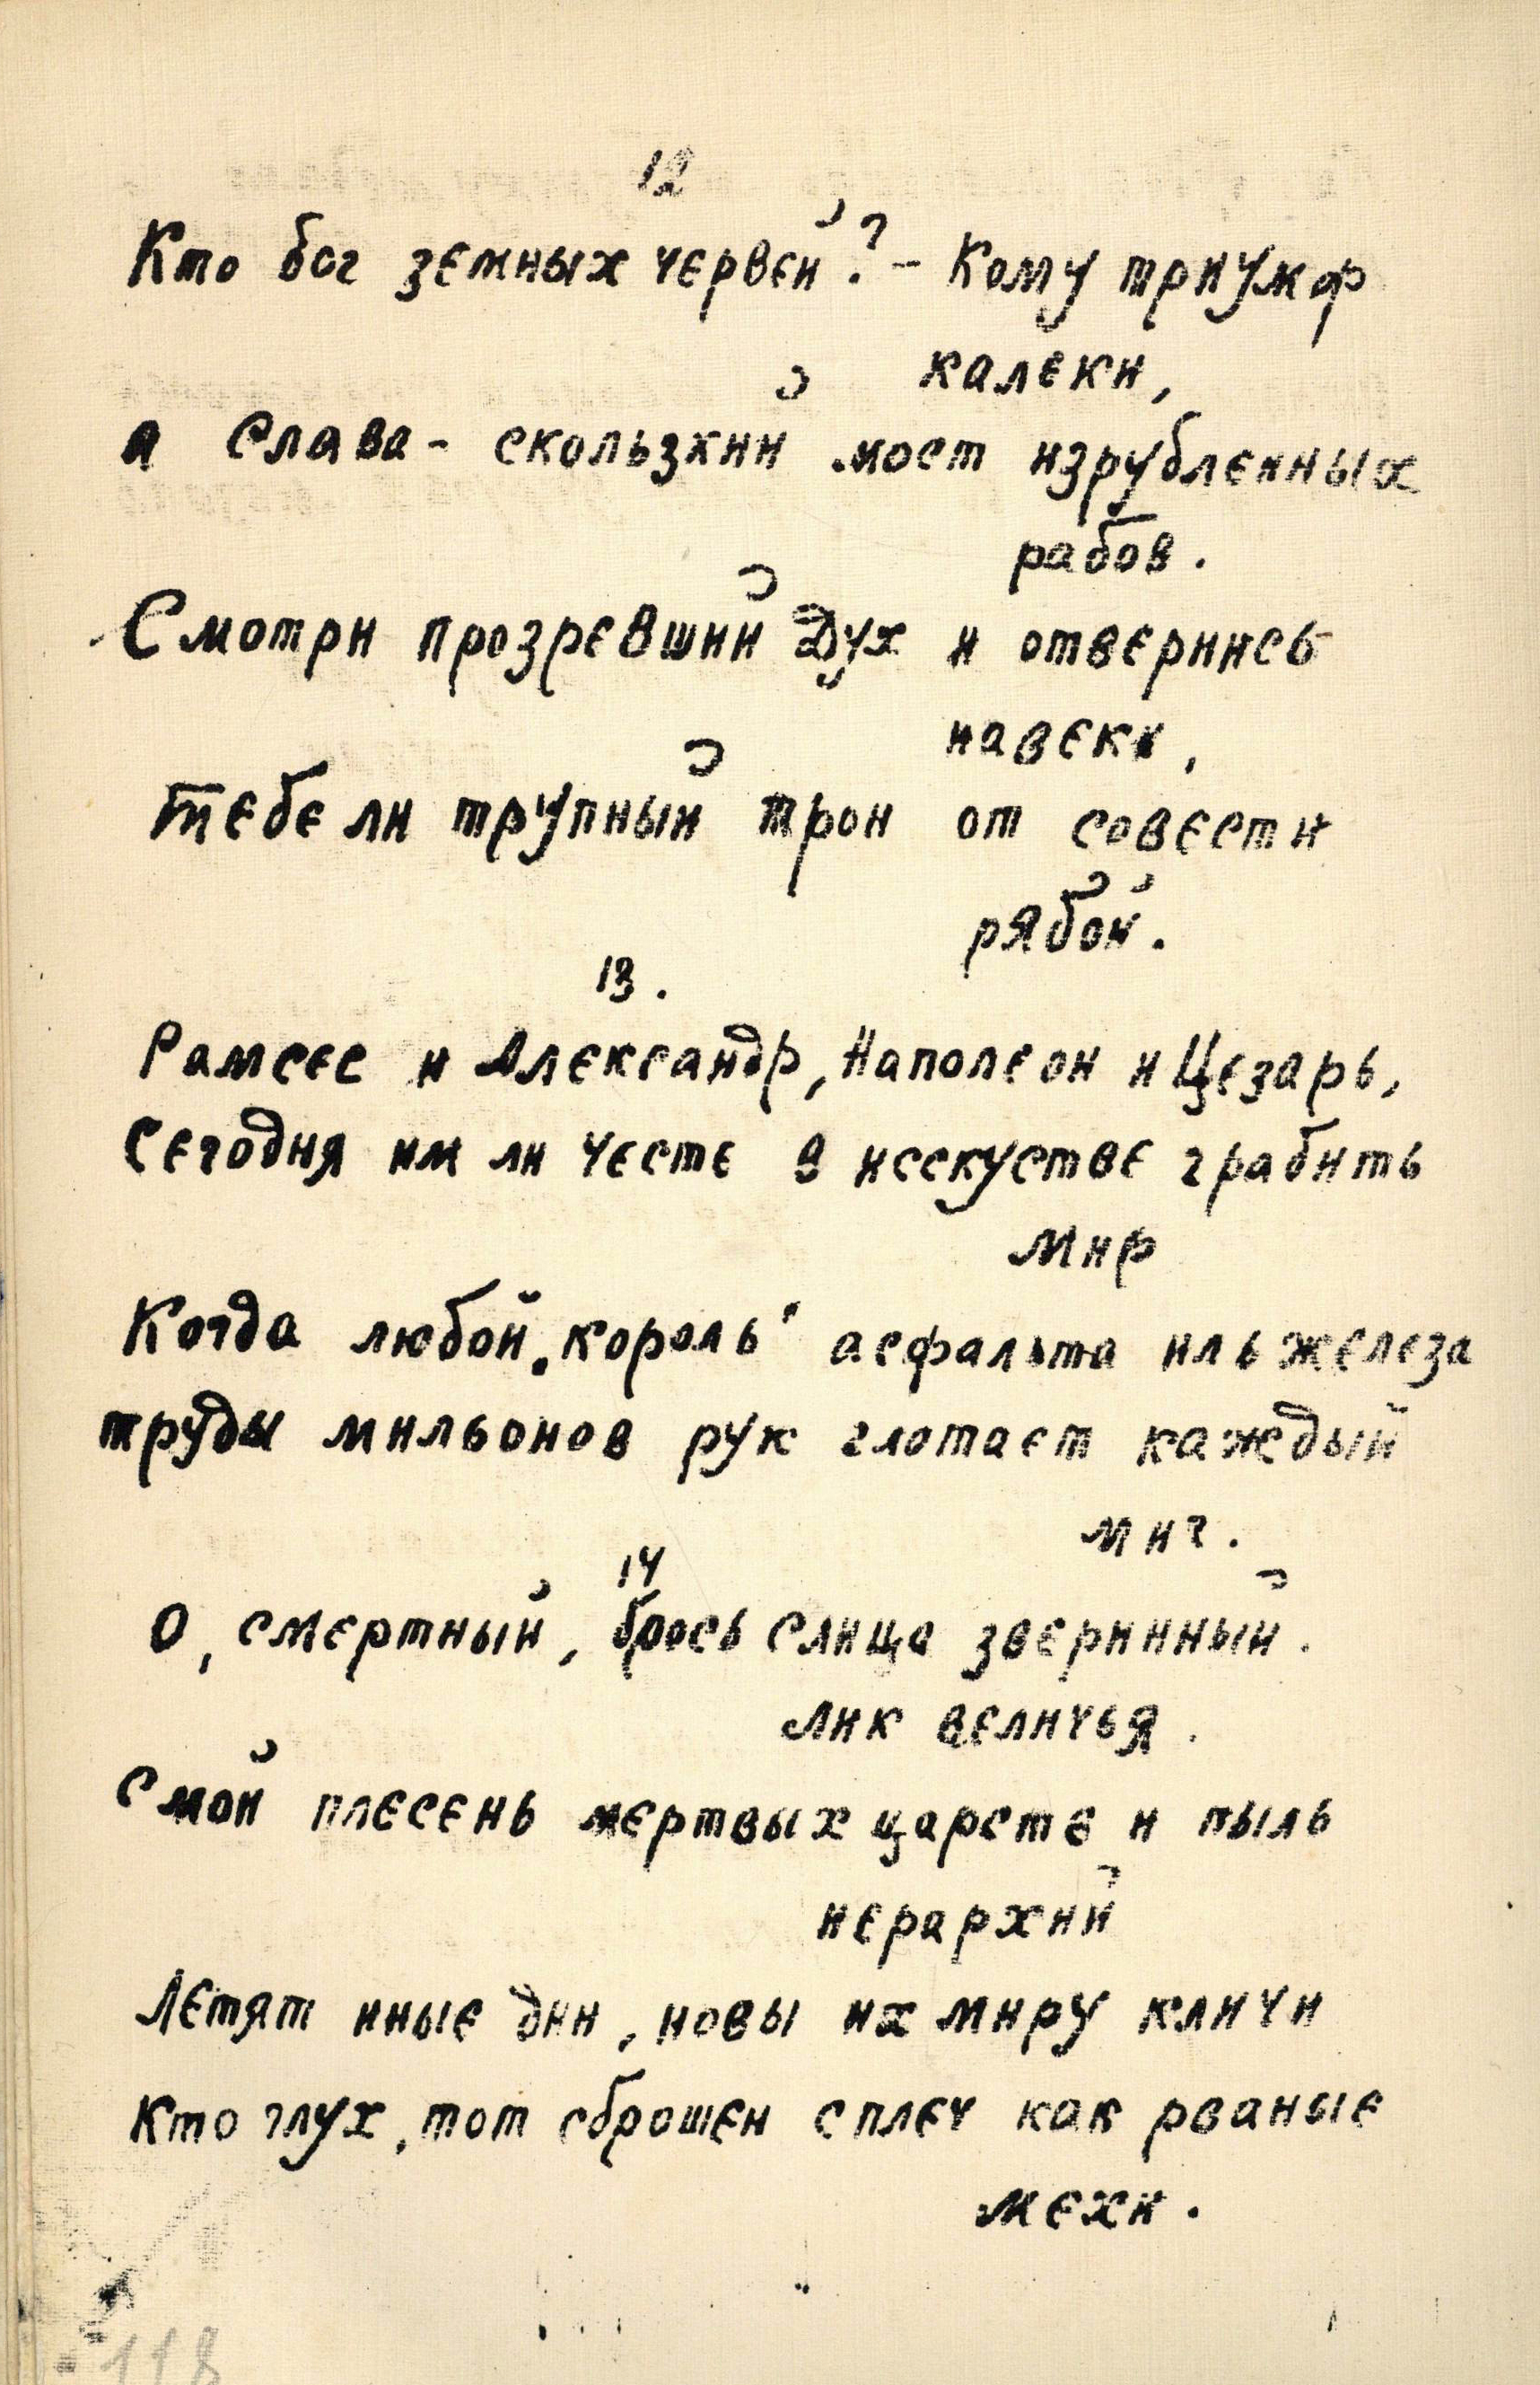 12
Кто бог земных червей? - Кому триумф
калеки,
а Слава - скользкий мост изрубленных
рабов.
Смотри прозревший Дух и отвернись
навеки,
Тебе ли трупный трон от совести
рябой.
13.
Рамсес и Александр, Наполеон и Цезарь,
Сегодня им ли честь в исскустве грабить
мир
Когда любой „король“ асфальта иль железа
труды мильонов рук глотает каждый
миг.
14
О, смертный, брось слища зверинный.
лик величья.
Смой плесень мертвых царств и пыль
иерархий
Летят иные дни, новы их миру кличи
Кто глух, тот сброшен с плеч как рваные
мехи.
118